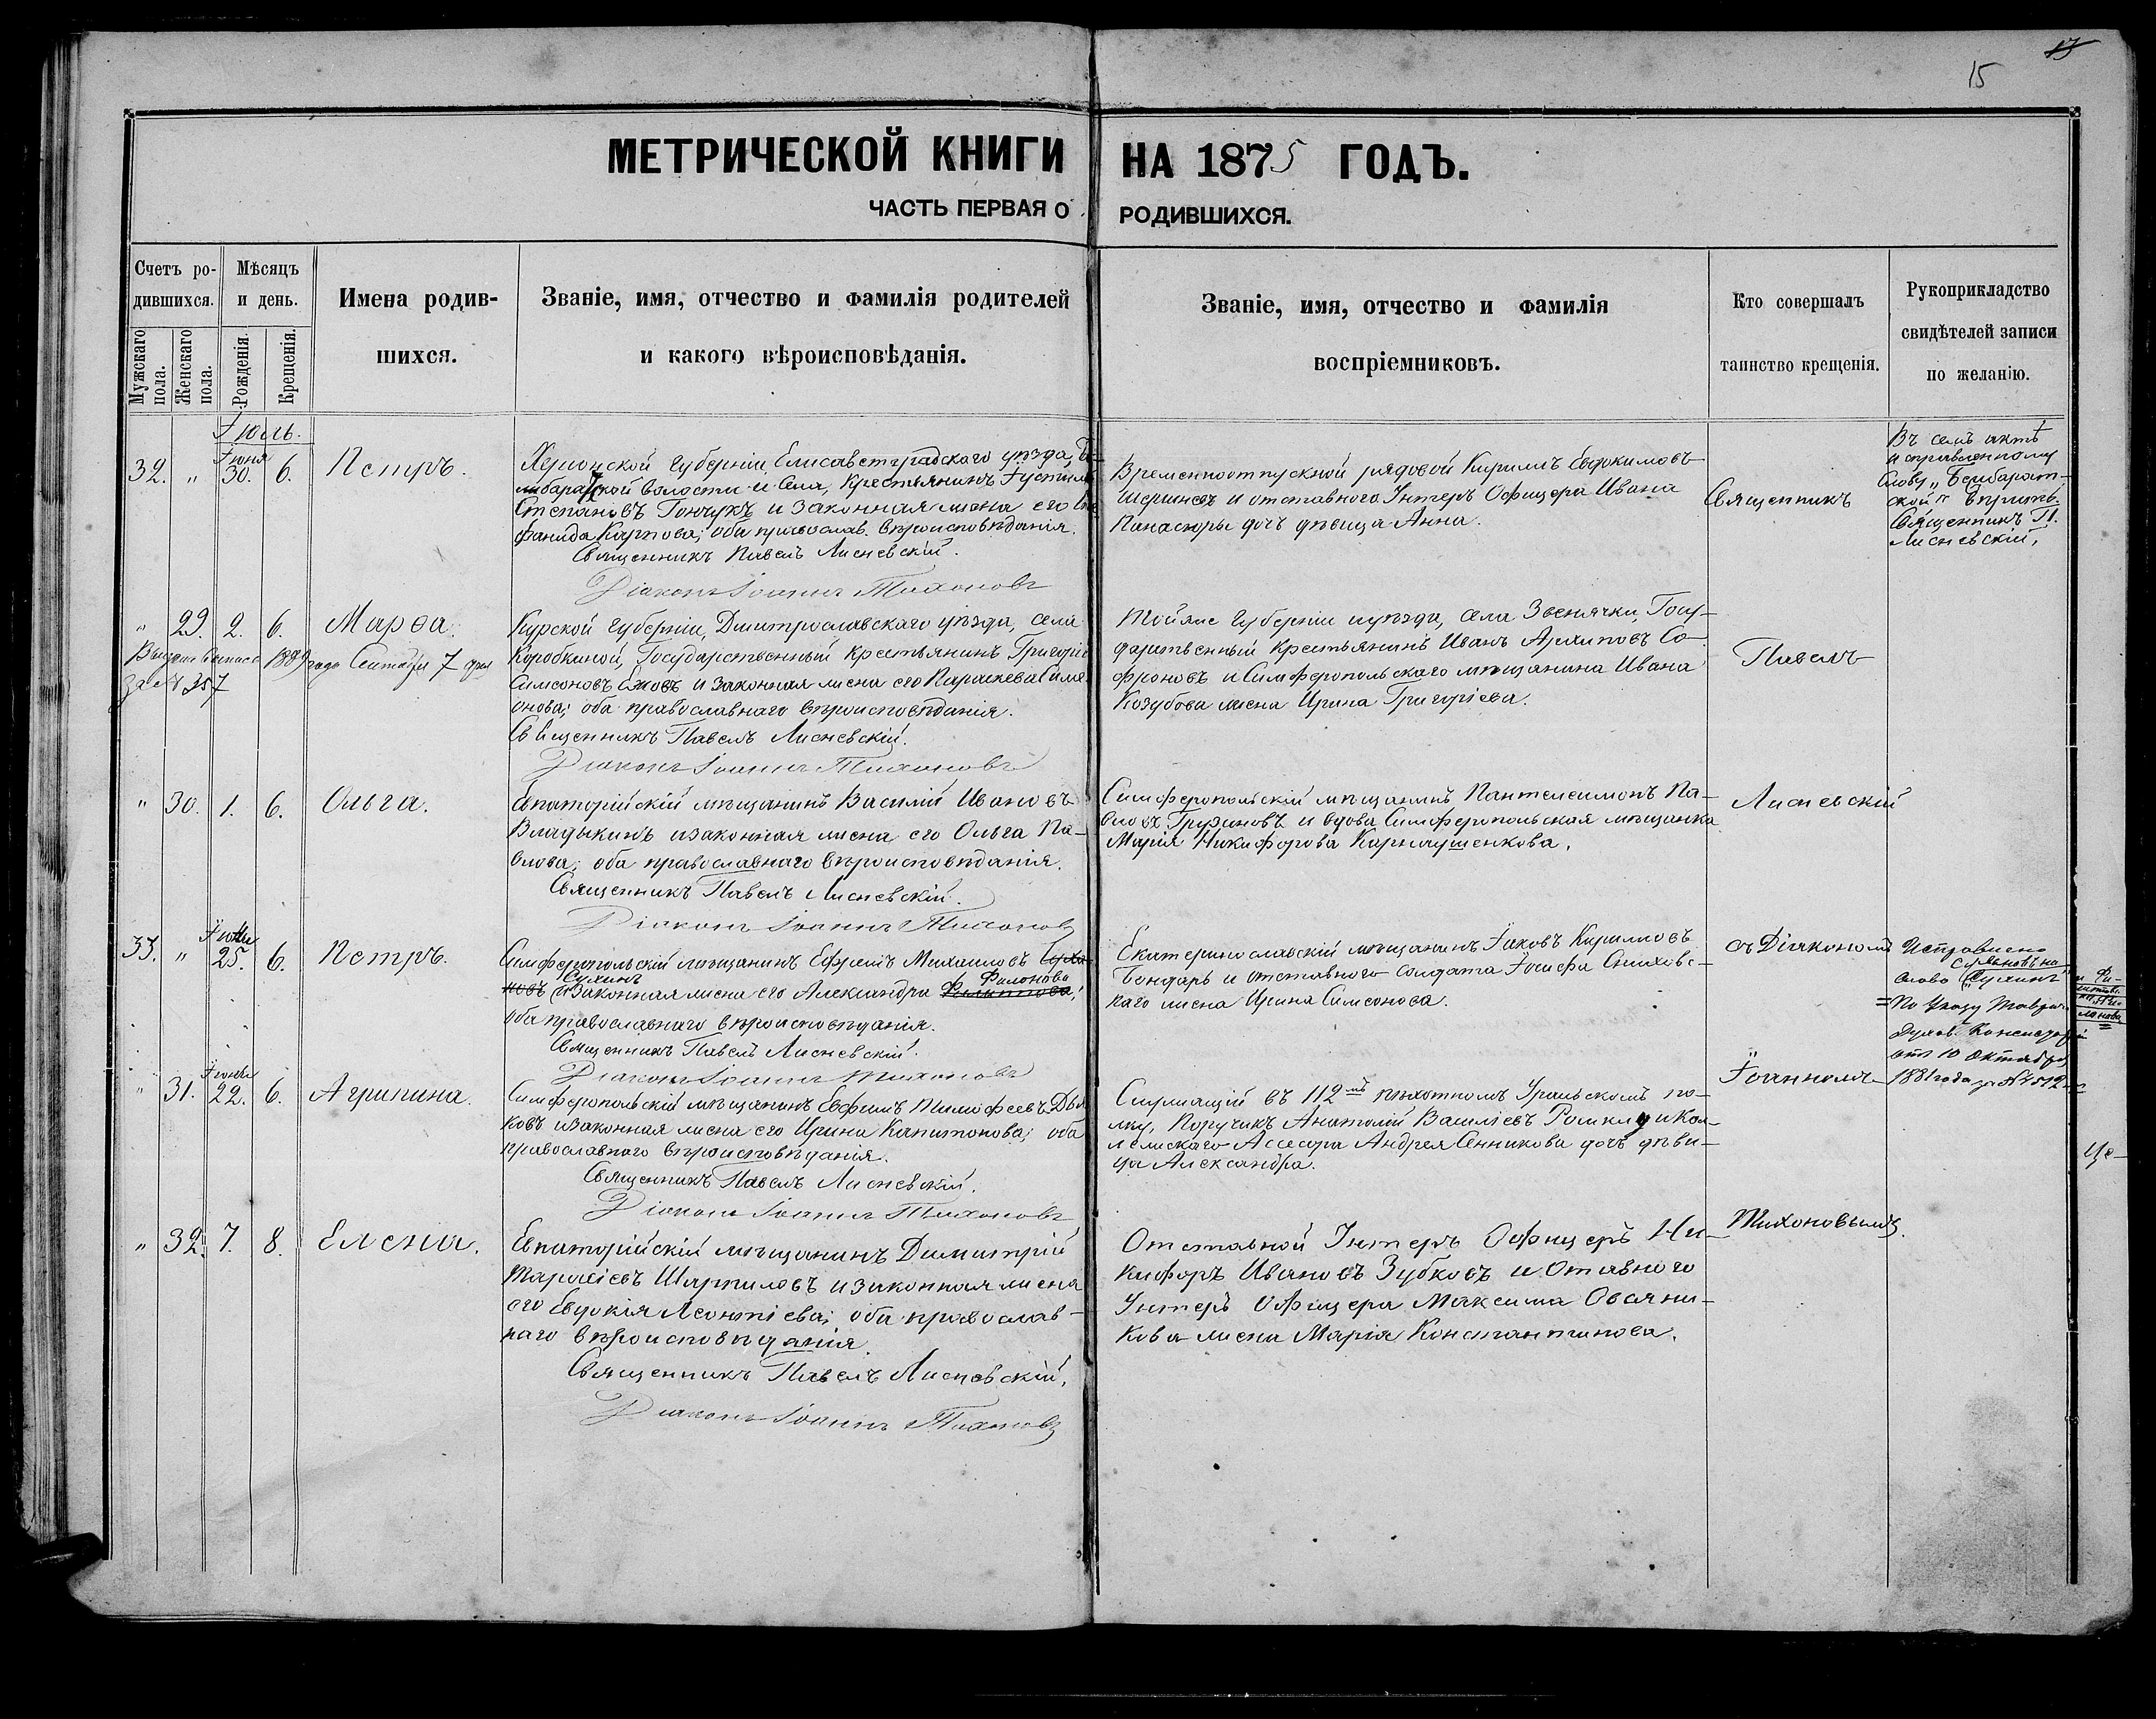 15
МЕТРИЧЕСКОЙ КНИГИ НА 1875 ГОДЪ.
ЧАСТЬ ПЕРВАЯ О РОДИВШИХСЯ.
Счетъ ро-
дившихся.
Мужскаго пола.
Женскаго пола.
Мѣсяцъ
и день.
Рожденія.
Крещенія.
Имена родив-
шихся.
Званіе, имя, отчество и фамилія родителей
и какого вѣроисповѣданія.
Званіе, имя, отчество и фамилія
воспріемниковъ.
Кто совершалъ
таинство крещенія.
Рукоприкладство
свидѣтелей записи
по желанію.
Іюль.
32. " Іюня 30. 6. Петръ.
Херсонской Губерніи, Елисаветградскаго уѣзда,
волости и Села, Крестьянинъ
Степановъ Гончукъ и законная жена его
Карпова; оба православ. вѣроисповѣданія.
Священникъ Павелъ Лисневскій.
Діаконъ Іоаннъ Тихоновъ
Временноотпускной рядовой Кирилъ Евдокимовъ
и отставного Унтеръ Офицера Ивана
дочь дѣвица Анна.
Священникъ
Въ семъ актѣ
исправленному
Слову
вѣрить.
Священникъ П.
Лисневскій.
" 29. 2. 6. Марѳа.
Выдана выпись 1889 года Сентября 7 дня
за № 357
Курской Губерніи, Димитрославскаго уѣзда, села
Коробкиной, Государственный крестьянинъ Григорій
Симеоновъ Ежовъ и законная жена его Параскева Симе-
онова; оба православнаго вѣроисповѣданія.
Священникъ Павелъ Лисневскій.
Діаконъ Іоаннъ Тихоновъ
Той же Губерніи и уѣзда, села Звенячки, Госу-
дарственный крестьянинъ Иванъ Архиповъ Со-
фроновъ и Симферопольскаго мѣщанина Ивана
Козубова жена Ирина Григоріева.
Павелъ
" 30. 1. 6. Ольга.
Евпаторійскій мѣщанинъ Василій Ивановъ
Владыкинъ и законная жена его Ольга Па-
влова; оба православнаго вѣроисповѣданія.
Священникъ Павелъ Лисневскій.
Діаконъ Іоаннъ Тихоновъ
Симферопольскій мѣщанинъ Пантелеимонъ Па-
вловъ Грузиновъ и вдова Симферопольская мѣщанка
Марія Никифорова Карнаушенкова.
Лисневскій
33. " Іюня 25. 6. Петръ.
Симферопольскій мѣщанинъ Ефремъ Михаиловъ Суха-
Сухинъ Филонова
новъ и законная жена его Александра Филиппова;
оба православнаго вѣроисповѣданія.
Священникъ Павелъ Лисневскій.
Діаконъ Іоаннъ Тихоновъ
Екатеринославскій мѣщанинъ Іаковъ Кириловъ
Бондарь и отставного солдата Іосифа
жена Ирина Симеонова.
съ Діакономъ
Исправлено
слово „Сухинъ"
По Указу
Духов. Консисторіи
отъ 10 Октября
1881 года за № 4512
" 31. Іюня 22. 6. Агрипина.
Симферопольскій мѣщанинъ Евфимъ Тимофеевъ Дья-
ковъ и законная жена его Ирина Капитонова; оба
православнаго вѣроисповѣданія.
Священникъ Павелъ Лисневскій.
Діаконъ Іоаннъ Тихоновъ
Служащій въ 112мъ пѣхотномъ Уральскомъ по-
лку, Поручикъ Анатолій Василіевъ и Кол-
лежскаго Ассесора Андрея Сенникова дочь дѣви-
ца Александра.
Іоанномъ
" 32. 7. 8. Елена.
Евпаторійскій мѣщанинъ Димитрій
Тарасіевъ Шарпиловъ и законная жена
его Евдокія Леонтіева; оба православ-
наго вѣроисповѣданія.
Священникъ Павелъ Лисневскій.
Діаконъ Іоаннъ Тихоновъ
Отставной Унтеръ Офицеръ Ни-
кифоръ Ивановъ Зубковъ и Отавного
Унтеръ Офицера Максима Овсяни-
кова жена Марія Константинова.
Тихоновымъ.